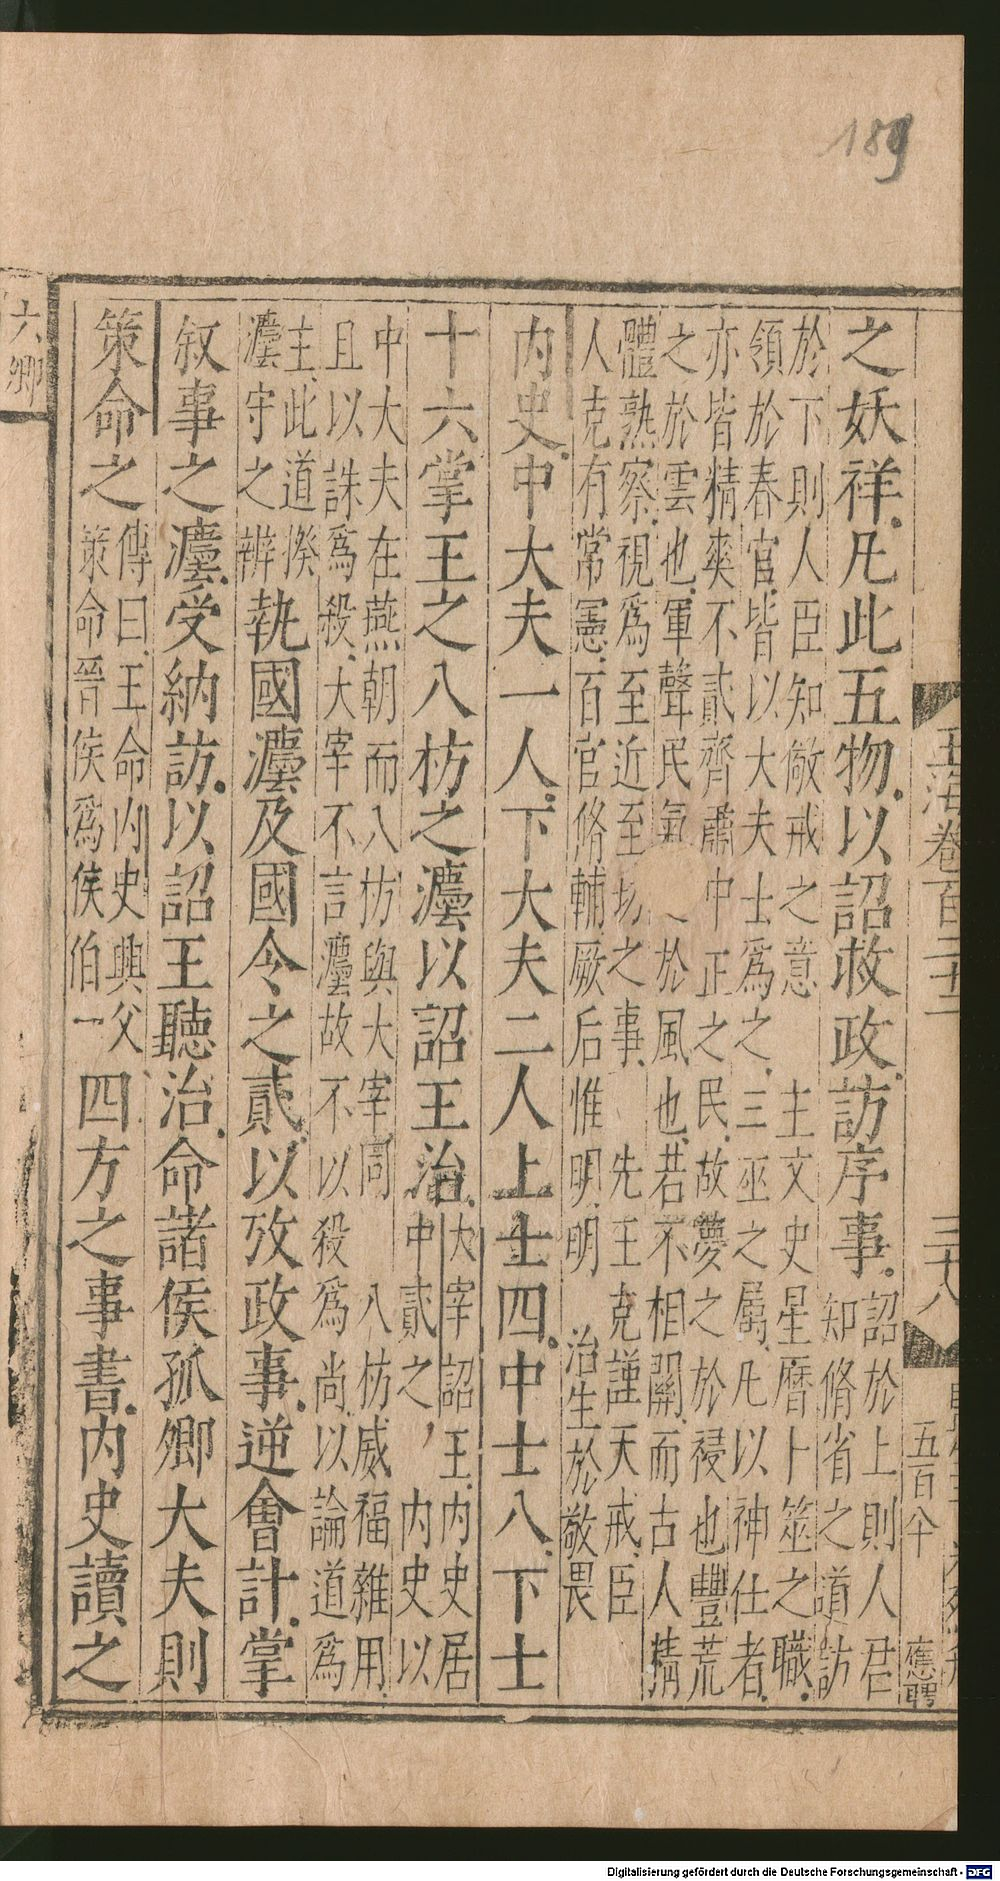 189
玉海卷百二十二
三十八
五百八十
應聘
之妖祥凡此五物以詔救政訪序事
詔於上則人君知脩省之道訪
於下則人臣知儆戒之意　主文史星曆卜筮之職
領於春官皆以大夫士爲之三巫之屬凡以神仕者
亦皆精爽不貳齊肅中正之民故夢之於祲也豐荒
之於雲也軍聲民氣之於風也若不相關而古人精
體熟察視爲至近至切之事　先王克謹天戒臣
人克有常憲百官脩輔厥后惟明明　治生於敬畏
內史中大夫一人下大夫二人上士四中士八下士
十六掌王之八枋之灋以詔王治
大宰詔王內史居
中貳之　內史以
中大夫在燕朝而八枋與大宰同　八枋威福雜用
且以誅爲殺大宰不言灋故不以殺爲尚以論道爲
主此道揆
灋守之辨
執國灋及國令之貳以攷政事逆會計掌
叙事之灋受納訪以詔王聽治命諸侯孤卿大夫則
策命之
傳曰王命內史興父
策命晉侯爲侯伯一
四方之事書內史讀之
六卿
Digitalisierung gefördert durch die Deutsche Forschungsgemeinschaft - DFG